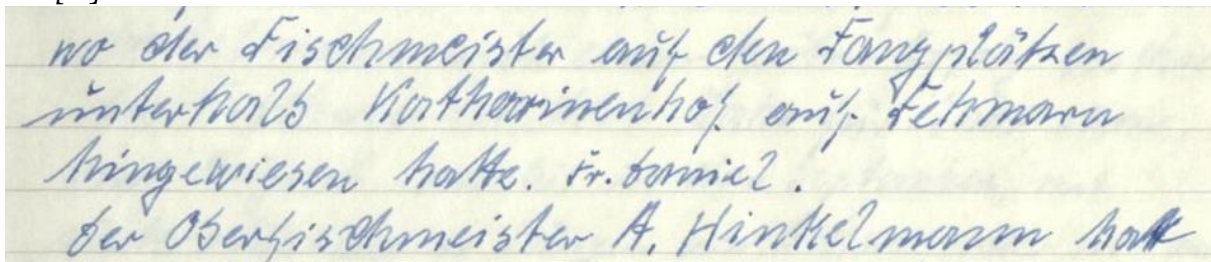 wo der Fischmeister auf den Fangplätzen
unterhalb Katharinenhof auf Fehmarn
hingewiesen hatte. Fr. Daniel.
Der Oberfischmeister A. Hinkelmann hatte